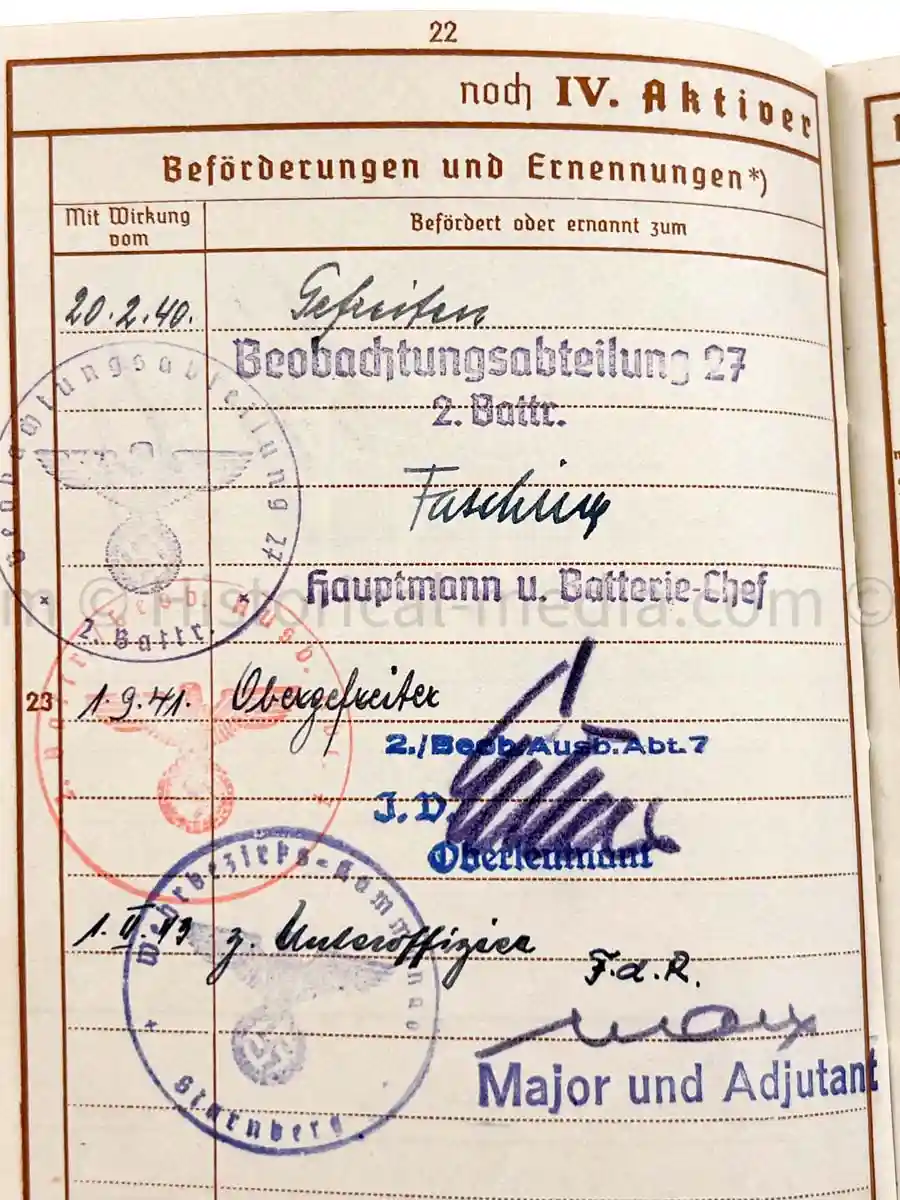 22
noch IV. Aktiver
Beförderungen und Ernennungen*)
Mit Wirkung vom
Befördert oder ernannt zum
20.2.40. Gefreiten
Beobachtungsabteilung 27
2. Battr.
Beobachtungsabteilung 27
2. Battr.
Hauptmann u. Batterie-Chef
© Historical-media.com ©
23 1.9.41. Obergefreiter
2./Beob.Ausb.Abt.7
J. V.
Oberleutnant
Wehrbezirks-Kommando
Starnberg
1.II.43 z. Unteroffizier
F.d.R.
Major und Adjutant